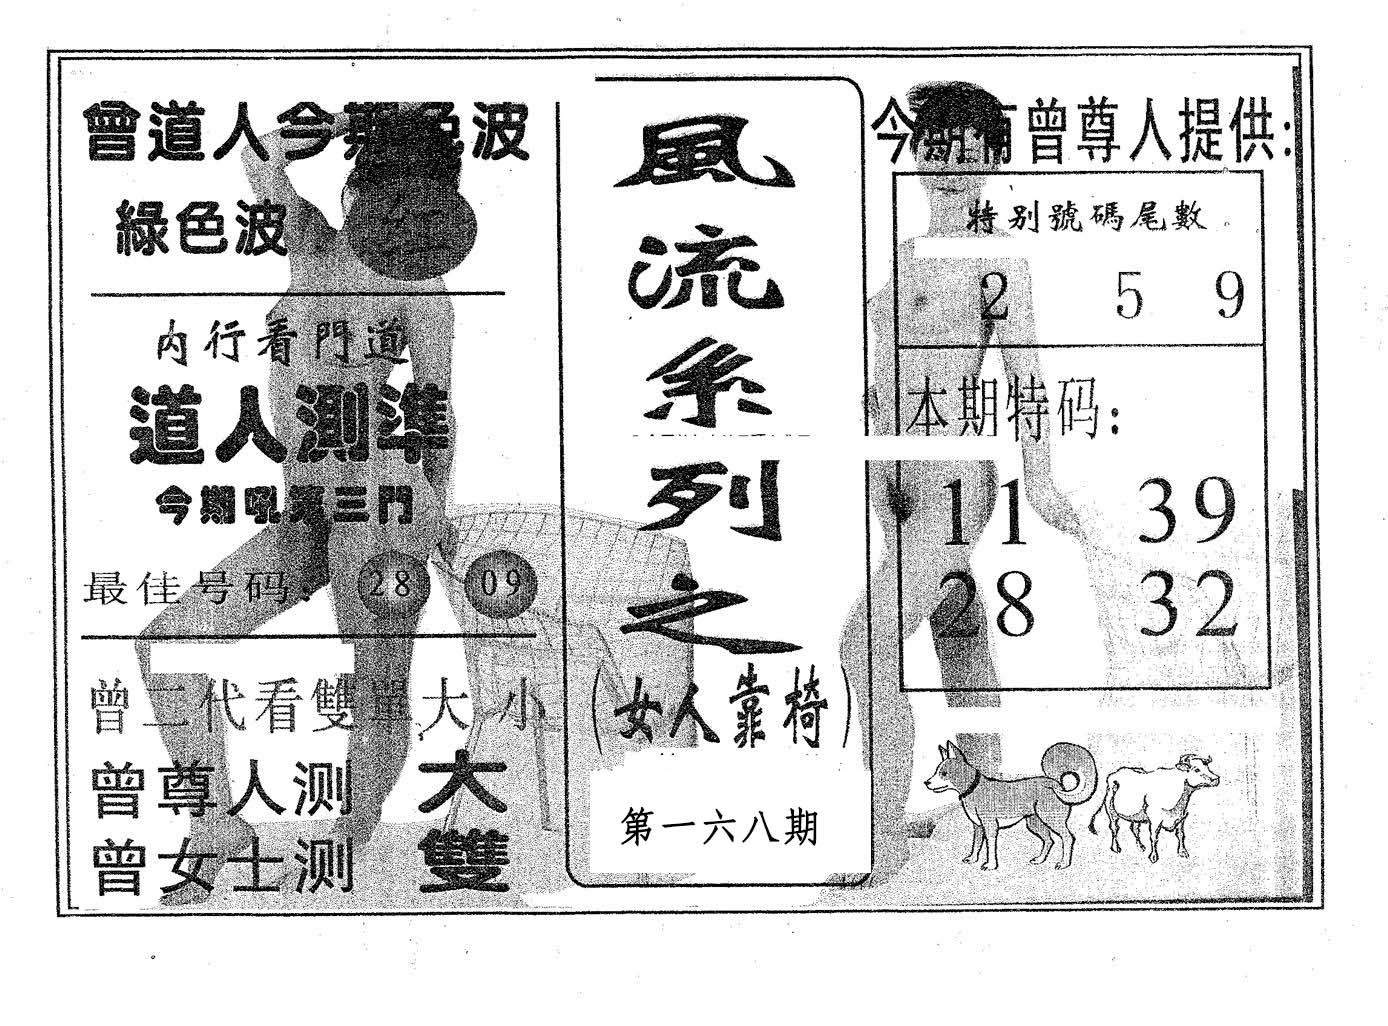 曾道人今期色波
綠色波
紅
內行看門道
道人測準
今期吼第三門
最佳号码: 28 09
曾二代看雙單大小
曾尊人测 大
曾女士测 雙
風流系列之
(女人靠椅)
第一六八期
今期有曾尊人提供:
特别號碼尾數
2 5 9
本期特码:
11 39
28 32